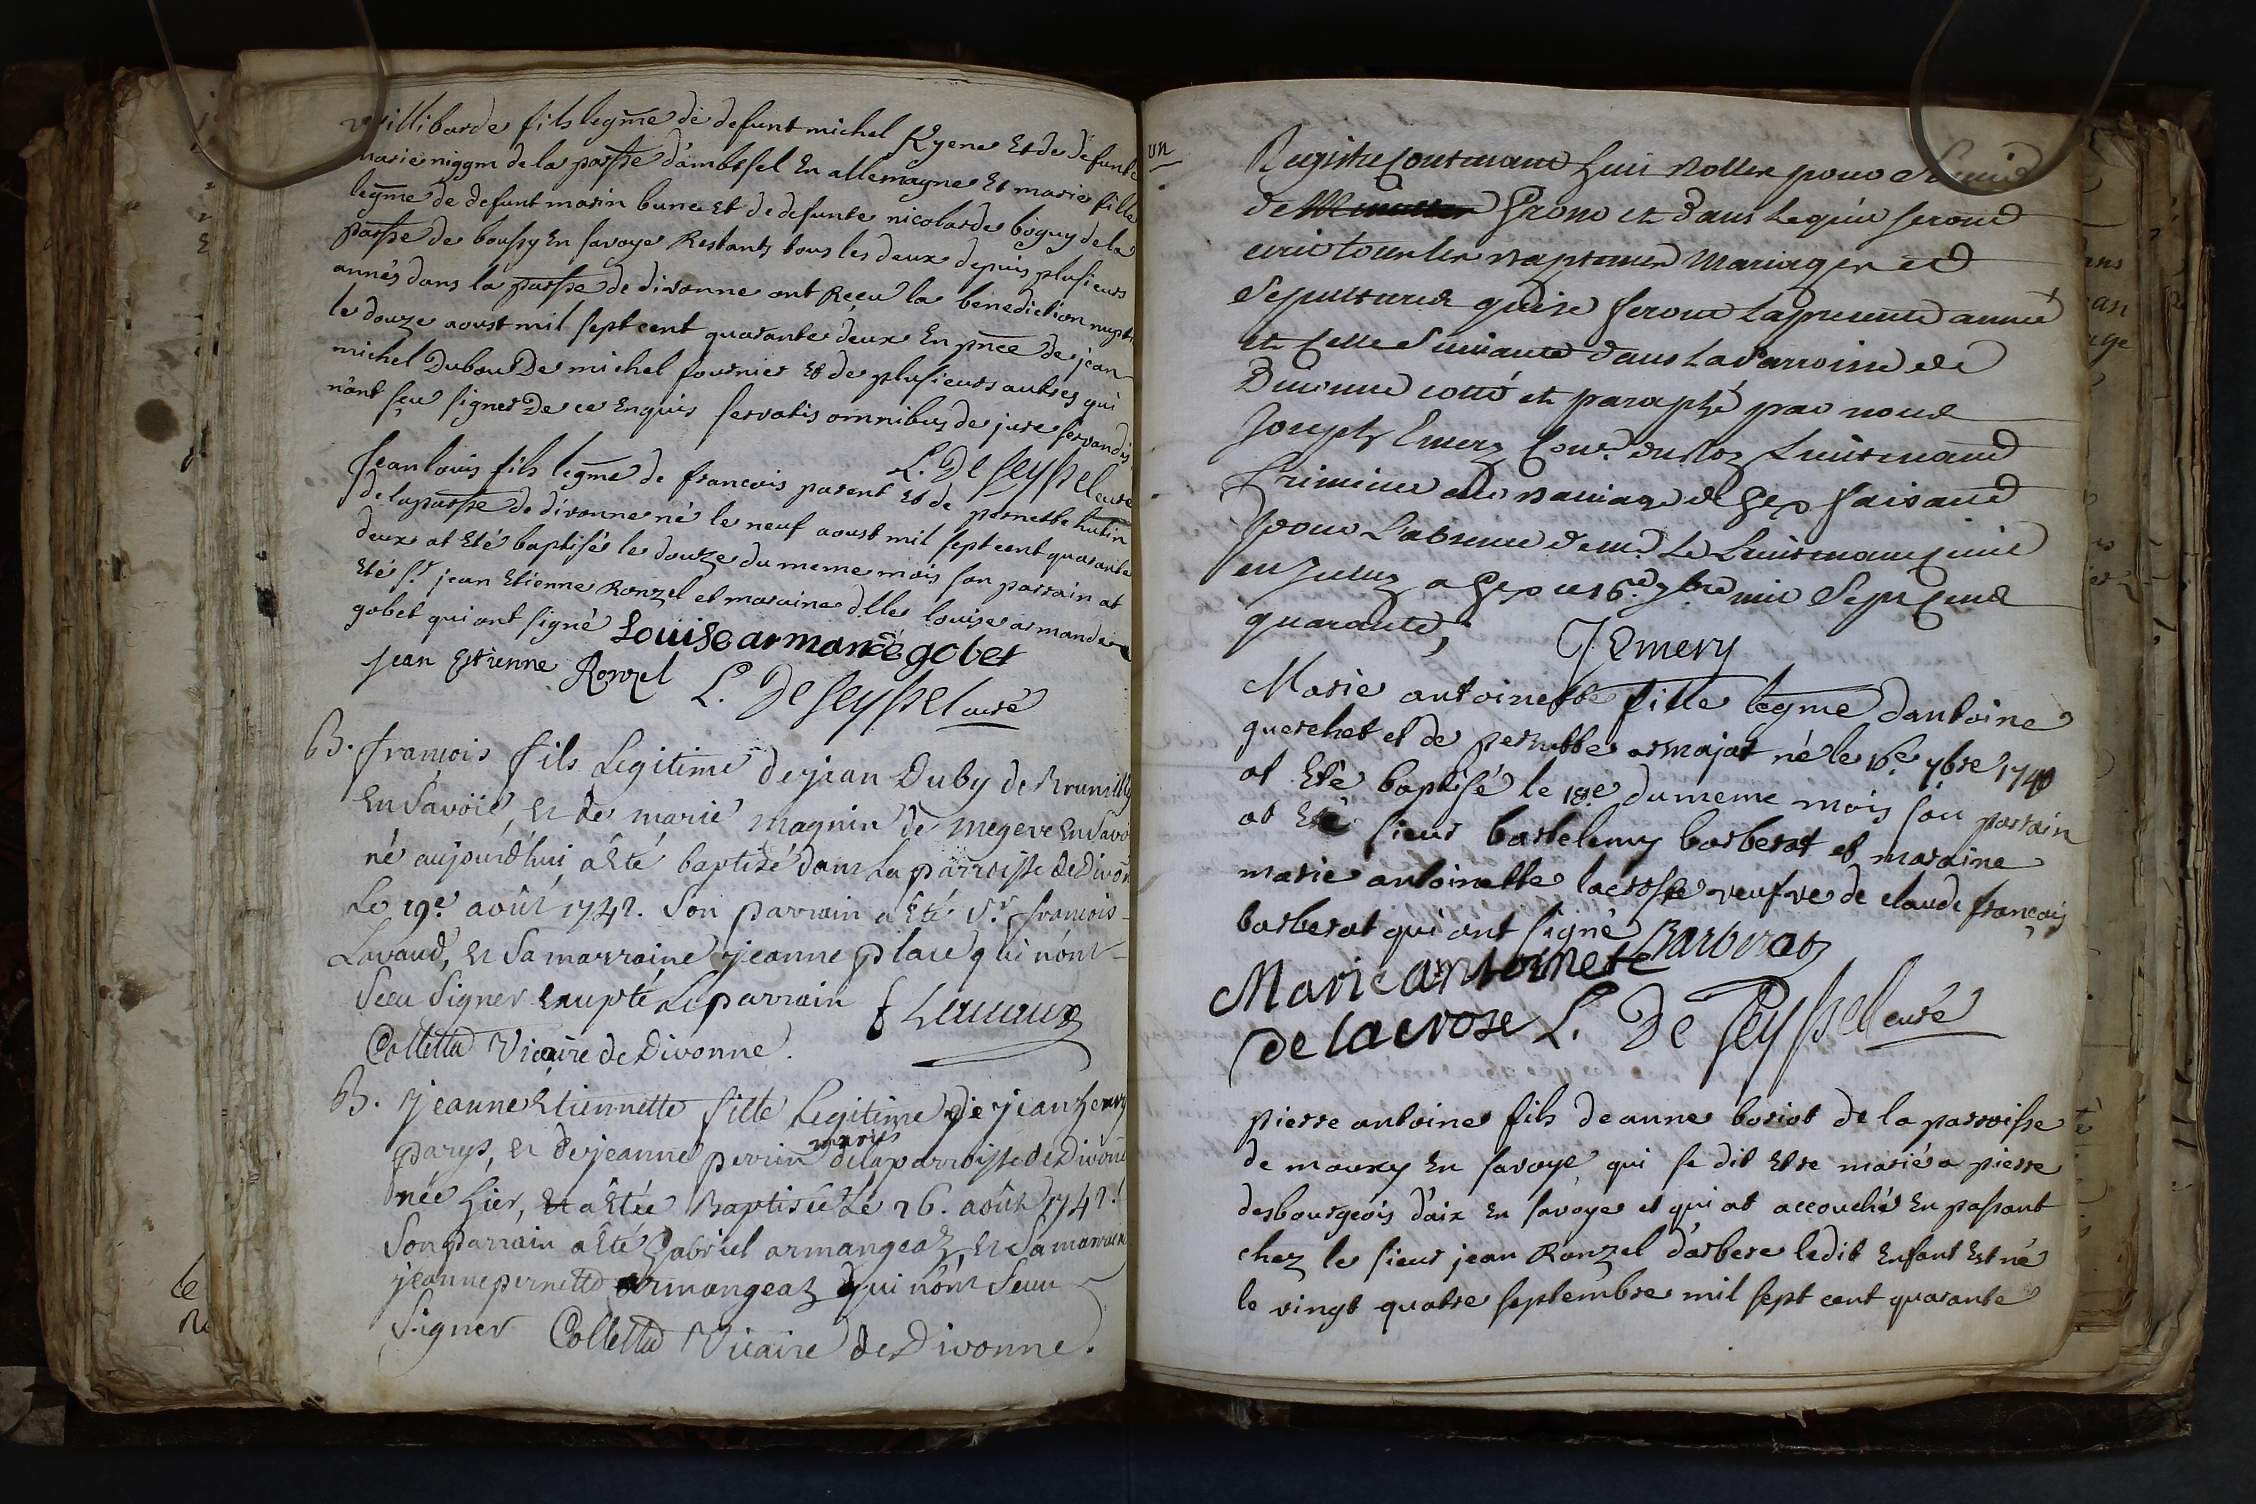 willibarde fils legme de defunt michel Kyene Et de defunte
marie niggm de la parsse d'ambtsel En allemagne Et marie fille
legme de defunt marin bune Et de defunte nicolarde boguy de la
parsse de boussy En savoye Restants tous les deux depuis plusieurs
années dans la parsse de divonne ont Reçeu la benediction nupti
le douze aoust mil sept cent quarante deux En pnce de jean
michel Dubou De michel fournier Et de plusieurs autres qui
n'ont sçeu signer De ce Enquis servatis omnibus de jure servandis
L. De Seyssel curé
Jean louis fils legme de francois parent Et de pernette hutin
de la parsse de divonne né le neuf aoust mil sept cent quarante
deux at Eté baptisé le douze du meme mois son parrain at
Eté sr jean Etienne Ronzel et maraine dlle louise armande
gobet qui ont signé Louise armande gobet
jean Estienne Ronzel L. De Seyssel curé
B. francois fils Legitime de jean Duby de Rumilly
En Savoïe, Et de marie magnin de megeve En Savo
né aujourd'hui, a Eté baptisé dans La parroisse de Divon
Le 19e août 1742. Son parrain a Eté Sr francois
Lavaud, Et Sa marraine jeanne place qui n'ont
Sceu Signer Exupté Le parrain f Lavaud
Colletta Vicaire de Divonne.
B. jeanne Etiennette fille Legitime de jean henry
parys, Et de jeanne perrin mariés de la parroisse de Divonne
née hier, Et a Eté Baptisée Le 26. août 1742.
Son parrain a Eté Gabriel armangeat, Et Sa marraine
jeanne pernette armangeaz qui n'ont Sceu
Signer Colletta Vicaire de Divonne.
un
Registre Contenant huit Rolles pour Servir
de Grosse et dans Lequel Seront
ecrit tous les Baptemes Mariages et
Sepultures qui se feront La presente année
et Celle Suivante dans La Parroisse de
Divonne cotté et paraphé par nous
Joseph Emery Conr du Roy Lieutenant
Criminel au Bailiage de Gex faisant
pour L'absence de mr Le Lieutenant Civil
a Gex ce 16e 7bre mil Sept Cent
quarante, J Emery
Marie antoinette fille legme dantoine
guerchet et de pernette armajat né le 16e 7bre 1740
at Eté baptisé le 18e du meme mois son parrain
at Eté sieur bartelemy barberat et maraine
marie antoinette lacrosse veufve de claude françois
barberat qui ont signé Barberat
Marie antoinete
de lacrose L. De Seyssel curé
pierre antoine fils de anne boriot de la parroisse
de mouxy En savoye qui se dit Etre marié a pierre
desbourgeois d'aix En savoye et qui at accouché En passant
chez le sieur jean Ronzel d'arbere ledit Enfant Est né
le vingt quatre septembre mil sept cent quarante